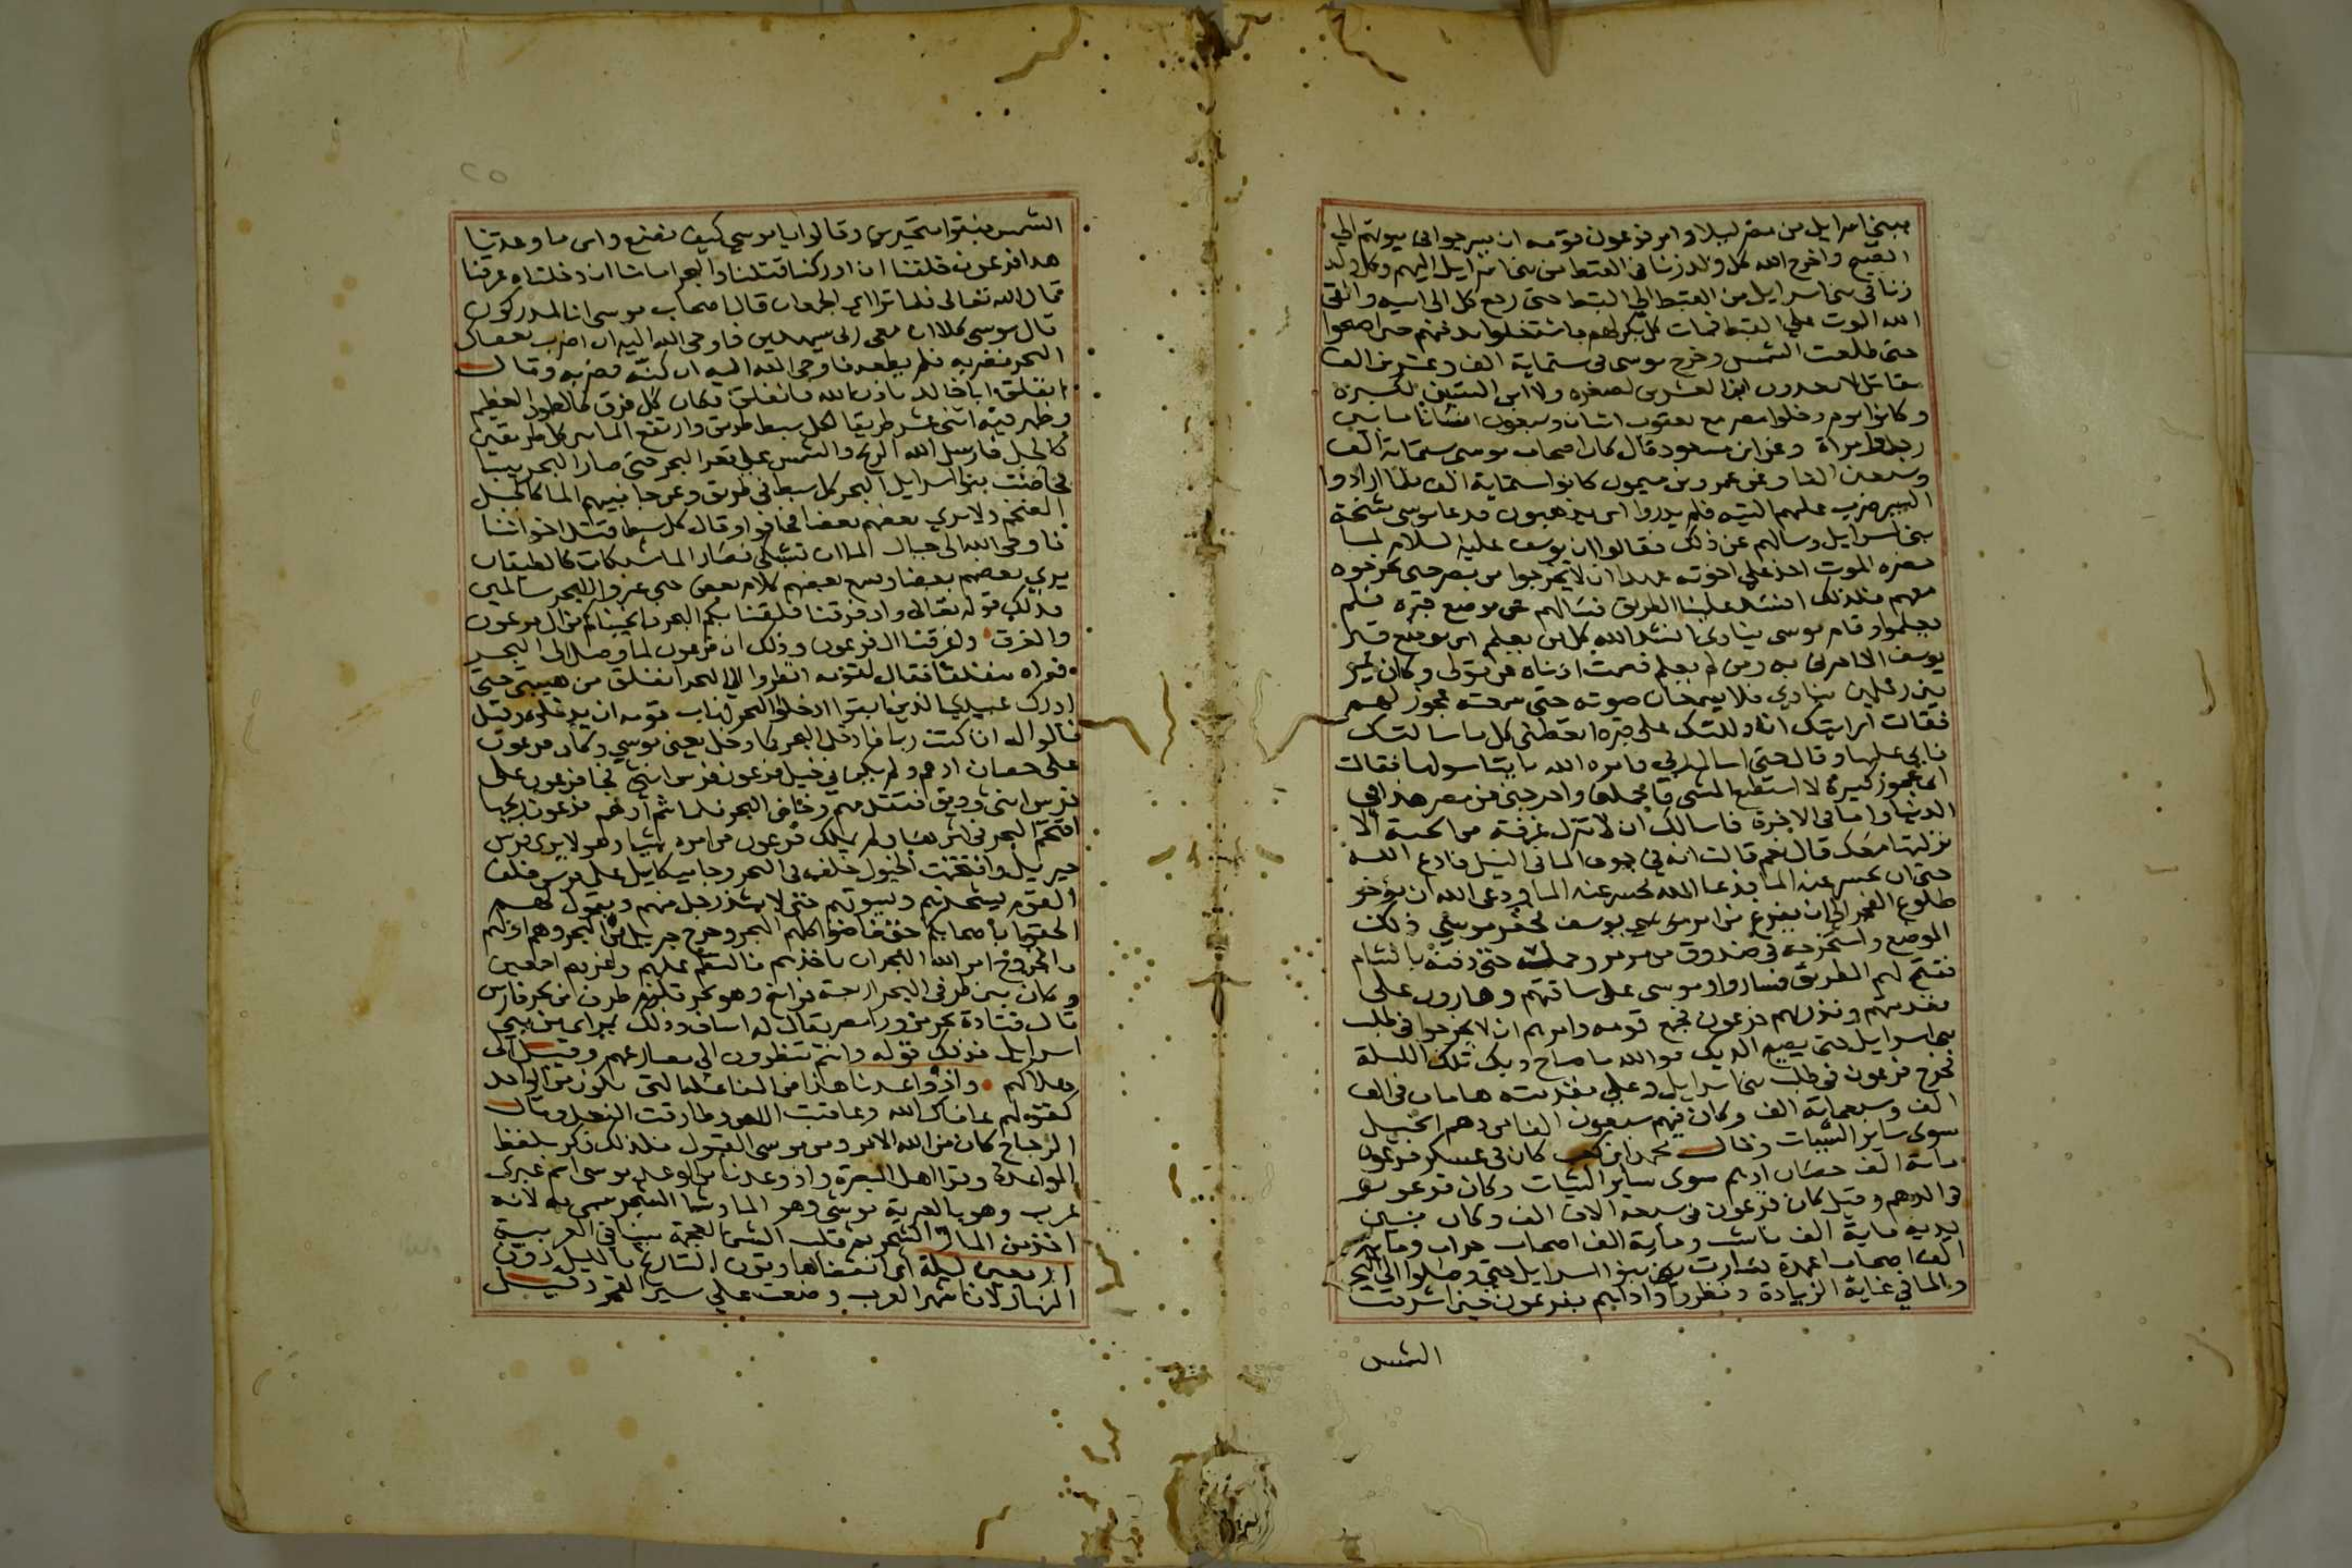 ببني اسرايل من مصر ليلا وامر فرعون قومه ان يسرجوا في بيوتهم الي
الصبح واخرج الله كل ولد زنا في القبط من بني اسرايل اليهم وكل ولد
زنا في بني اسرايل من القبط الي القبط حتى رجع كل الى ابيه والقى
الله الموت علي القبط فمات كل بكر لهم فاشتغلوا بدفنهم حتى اصبحوا
حتى طلعت الشمس وخرج موسى في ستماية الف وعشرين الف
مقاتل لا يعدون ابن العشرين لصغره ولا ابن الستين لكبره
وكانوا يوم دخلوا مصر مع يعقوب اثنان وسبعون انسانا ما بين
رجل وامراة وعن ابن مسعود قال كان اصحاب موسى ستماية الف
وسبعين الفا وعن عمرو بن ميمون كانوا ستماية الف فلما ارادوا
السير ضرب عليهم التيه فلم يدروا اين يذهبون فدعا موسى مشيخة
بني اسرايل وسالهم عن ذلك فقالوا ان يوسف عليه السلام لما
حضره الموت اخذ علي اخوته عهدا ان لا يخرجوا من مصر حتى يخرجوه
معهم فلذلك انسد علينا الطريق فسالهم عن موضع قبره فلم
يعلموا وقام موسى ينادي انشد الله كل من يعلم اين موضع قبر
يوسف الا اخبرني به ومن لم يعلم فصمت اذناه عن قولي وكان يمر
بين رجلين ينادي فلا يسمعان صوته حتى سمعته عجوز لهم
فقالت ارايتك ان دللتك على قبره اتعطني كل ما سالتك
فابى عليها وقال حتى اسال ربي فامره الله بايتا سولها فقالت
اني عجوز كبيرة لا استطيع المشي فاحملني واخرجني من مصر هذا في
الدنيا واما في الاخرة فاسالك ان لا تنزل غرفة من الجنة الا
نزلتها معك قال نعم قالت انه في جوف الما في النيل فادع الله
حتى ان يحسر عنه الما فدعا الله فحسر عنه الما ودعى الله ان يؤخر
طلوع الفجر الى ان يفرغ من امر يوسف فحفر موسى ذلك
الموضع واستخرجه في صندوق من مرمر وحمله حتى دفنه بالشام
ففتح لهم الطريق فساروا وموسى على ساقتهم وهارون على
مقدمتهم ونذر بهم فرعون فجمع قومه وامرهم ان لا يخرجوا في طلب
بني اسرايل حتى يصيح الديك فوالله ما صاح ديك تلك الليلة
فخرج فرعون في طلب بني اسرايل وعلي مقدمته هامان في الف
الف وسبعماية الف وكان فيهم سبعون الفا من دهم الخيل
سوى ساير الشيات وقال محمد ابن كعب كان في عسكر فرعون
ماية الف حصان ادهم سوى ساير الشيات وكان فرعون
في الدهم وقيل كان فرعون في سبعة الاف الف وكان بين
يديه ماية الف ناشب وماية الف اصحاب حراب وماية
الف اصحاب اعمدة فسارت بنوا اسرايل حتى وصلوا الي البحر
والما في غاية الزيادة ونظروا واذا هم بفرعون حين اشرقت
الشمس
٢٥
الشمس فبقوا متحيرين وقالوا يا موسى كيف نصنع واين ما وعدتنا
هذا فرعون خلفنا ان ادركنا قتلنا والبحر امامنا ان دخلناه غرقنا
قال الله تعالى فلما تراا الجمعان قال اصحاب موسى انا لمدركون
قال موسى كلا ان معي ربى سيهدين فاوحى الله اليه ان اضرب بعصاك
البحر فضربه فلم يطعه فاوحى الله اليه ان كنّه فضربه وقال
انفلق ابا خالد باذن الله فانفلق فكان كل فرق كالطود العظيم
وظهر فيه اثني عشر طريقا لكل سبط طريق وارتفع الما بين كل طريقين
كالجبل فارسل الله الريح والشمس على قعر البحر حتى صار البحر يبسا
فخاضت بنوا اسرايل البحر كل سبط في طريق وعن جانبيهم الما كالجبل
الضخم ولا يري بعضهم بعضا فخافوا وقال كل سبط قد قتل اخواننا
فاوحى الله الى جبال الما ان تشبكي فصار الما شبكات كالطبقات
يري بعضهم بعضا ويسمع بعضهم كلام بعض حتى عبروا البحر سالمين
فذلك قوله تعالى واذ فرقنا فلقنا بكم البحر فانجيناكم من ال فرعون
والغرق واغرقنا ال فرعون وذلك ان فرعون لما وصل الى البحر
فراه منفلقا فقال لقومه انظروا الي البحر انفلق من هيبتي حتى
ادرك عبيدي الذين ابقوا ادخلوا البحر فهاب قومه ان يدخلوه وقيل
قالوا له ان كنت ربا فادخل البحر كما دخل يعني موسى وكان فرعون
على حصان ادهم ولم يكن في خيل فرعون فرس انثى فجا جبريل على
فرس انثى وديق فتقدمهم وخاض البحر فلما شم ادهم فرعون ريحها
اقتحم البحر في اثرها ولم يملك فرعون من امره شيا وهو لا يرى فرس
جبريل واقتحمت الخيول خلفه في البحر وجا ميكايل على فرس خلف
القوم يستحثهم ويسوقهم حتى لا يشذ رجل منهم ويقول لهم
الحقوا باصحابكم حتى خاضوا كلهم البحر وخرج جبريل من البحر وهم اولهم
بالخروج امر الله البحر ان ياخذهم فالتطم عليهم واغرقهم اجمعين
وكان بين طرفي البحر اربعة فراسخ وهو بحر قلزم طرف من بحر فارس
قال قتادة بحر من ورا مصر يقال له اساف وذلك بمراي من بني
اسرايل فذلك قوله وانتم تنظرون الي مصارعهم وقيل الى
هلاكهم واذ واعدنا هذا من المفاعلة التى تكون من الواحد
كقولهم عافاك الله وعاقبت اللص وطارقت النعل وقال
الزجاج كان من الله الامر ومن موسى القبول فلذلك ذكر بلفظ
المواعدة وقرا اهل البصرة واذ وعدنا من الوعد موسى اسم عبرى
عرب وهو بالعبرية موشي وهو الما وشا الشجر سمي به لانه
اخذ من الما والشجر ثم قلبت الشين المعجمة سينا في العربية
اربعين ليلة اي انقضاها وقرن التاريخ بالليل دون
النهار لان شهر العرب وضعت علي سير القمر وقيل